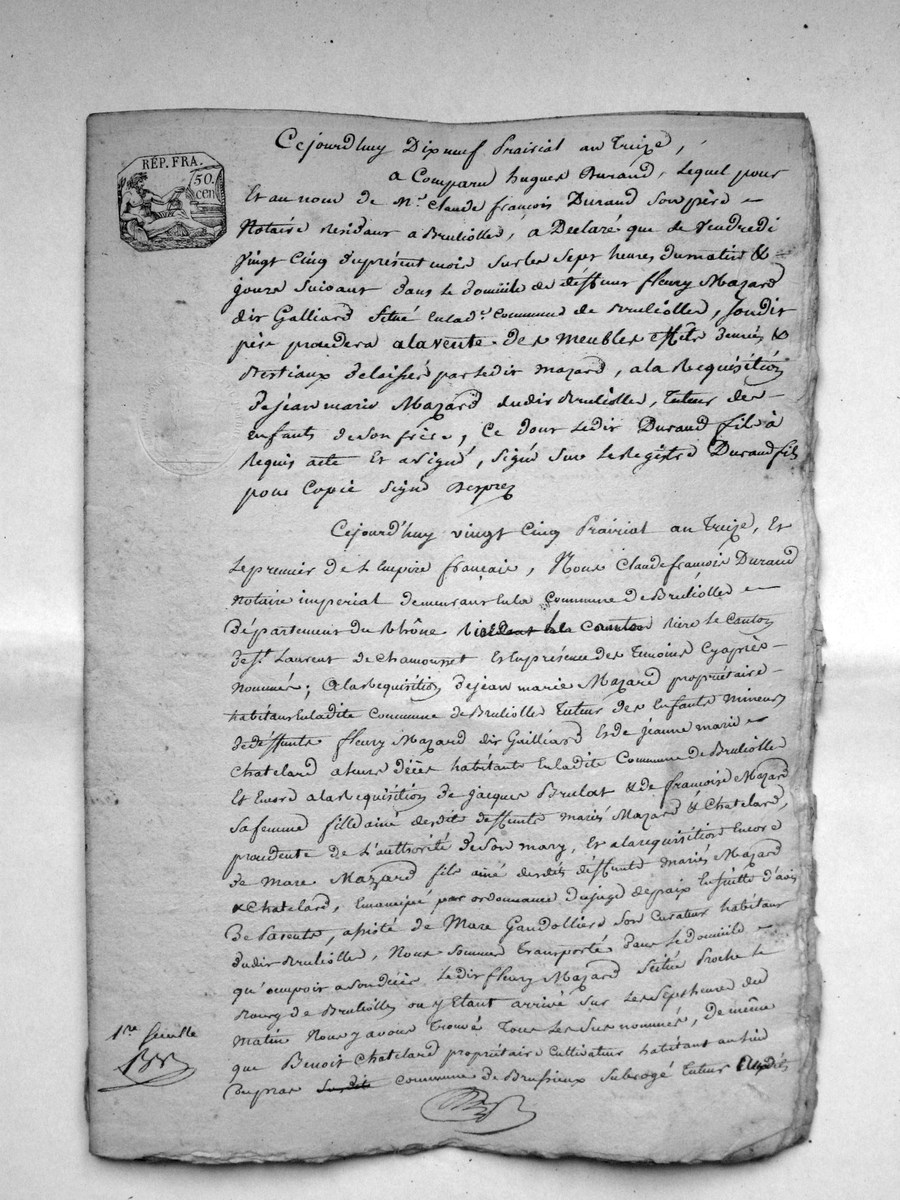 RÉP. FRA.
50.
cen
Cejourd'huy Dixneuf Prairial an treize,
a Comparu hugues Durand, lequel pour
Et au nom de Mr. Claude françois Durand son père
Notaire residant a Brulioles, a Declaré que le Vendredi
Vingt Cinq du présent mois sur les sept heures du matin &
jours suivant dans le domicile de deffunt fleury Mazard
dit Galliard situé en lad. Commune de Brulioles, sondit
père procedera a la vente des meubles effets denrées &
Bestiaux delaissés par ledit mazard, a la Requisition
de jean marie Mazard dudit Brulioles, tuteur des
Enfants de son frère, Ce dont ledit Durand fils à
Requis acte Et a signé, signé sur le Registre Durand fils
pour Copie signé
Cejourd'huy vingt Cinq Prairial an treize, Et
le premier de l'Empire français, Nous Claude françois Durand
Notaire imperial demeurant en la Commune de Brulioles
Département du Rhône rière le Canton
de St. Laurent de Chamousset Et en présence des temoins Cyaprès
Nommés; a la Requisition de jean marie Mazard propriétaire
habitant en ladite Commune de Brulioles tuteur des Enfants mineurs
de deffunts fleury Mazard dit Gailliard Et de jeanne marie
Chatelard a leurs décès habitants en ladite Commune de Brulioles
Et Encore a la Requisition de jacques Brulat & de françoise Mazard
sa femme fille ainé desdit deffunts mariés Mazard & Chatelard,
procedente de l'authorité de son mary, Et a la requisition Encore
de Marc Mazard fils ainé desdits deffunts mariés Mazard
& Chatelard, Emancipé par ordonnance du juge de paix Ensuitte d'avis
De Parents, assisté de Marc Gaudollier son Curateur habitant
dudit Brulioles, Nous sommes transporté dans le domicile
qu'occupoit a son décès ledit fleury Mazard Scitué Proche le
Bourg de Brulioles ou y Etant arrivé sur les sept heure du
Matin Nous y avons trouvé tous les sus nommés, De même
que Benoit Chatelard propriétaire Cultivateur habitant au lieu
du pras Commune de Brussieux Subrogé tuteur
1re feuille